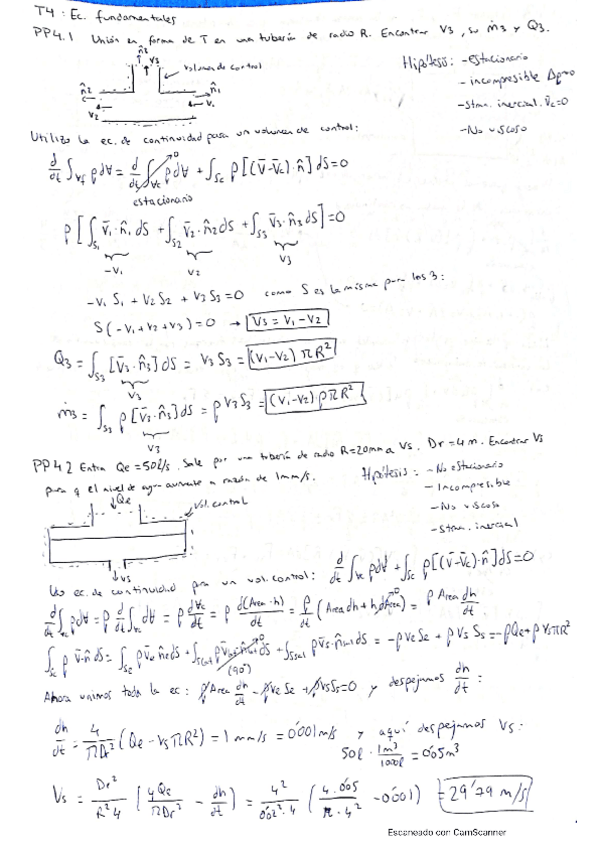 T4: Ec. fundamentales
PP4.1 Unión en forma de T en una tubería de radio R. Encontrar V3, su ṁ3 y Q3.
n̂3
V3
Volumen de control
n̂2
n̂1
V2
V1
Hipótesis: - estacionario
- incompresible
- Stma. inercial. V̄c=0
- No viscoso
Utilizo la ec. de continuidad para un volumen de control:
d/dt ∫Vf ρdV = d/dt ∫Vc ρdV + ∫Sc ρ[(V̄-V̄c)·n̂]dS=0
estacionario
ρ[∫S1 V̄1·n̂1dS + ∫S2 V̄2·n̂2dS + ∫S3 V̄3·n̂3dS]=0
-V1 V2 V3
-V1S1 + V2S2 + V3S3=0 como S es la misma para los 3:
S(-V1+V2+V3)=0 → V3 = V1-V2
Q3 = ∫S3 [V̄3·n̂3]dS = V3S3 = (V1-V2)πR²
V3
ṁ3 = ∫S3 ρ[V̄3·n̂3]dS = ρV3S3 = (V1-V2)ρπR²
V3
PP4.2 Entra Qe=50l/s. Sale por una tubería de radio R=20mm a Vs. Dr=4m. Encontrar Vs
para q el nivel de agua aumente a razón de 1mm/s.
Qe
Vol. control
Vs
Hipótesis: - No estacionario
- Incompresible
- No viscoso
- Stma. inercial
Uso ec. de continuidad para un vol. control: d/dt ∫Vc ρdV + ∫Sc ρ[(V̄-V̄c)·n̂]dS=0
d/dt ∫Vc ρdV = ρ d/dt ∫Vc dV = ρ dVc/dt = ρ d(Area·h)/dt = ρ/dt (Area dh + h dArea) = ρ Area dh/dt
∫Sc ρ V̄·n̂dS = ∫Se ρV̄e n̂edS + (90º) + ρV̄s·n̂ dS = -ρVeSe + ρVsSs = -ρQe + ρVsπR²
Ahora unimos toda la ec: ρArea dh/dt - ρVeSe + ρVsSs=0 y despejamos dh/dt:
dh/dt = 4/πDr² (Qe - VsπR²) = 1mm/s = 0'001m/s y aquí despejamos Vs:
50l · 1m³/1000l = 0'05m³
Vs = Dr²/R²4 (4Qe/πDr² - dh/dt) = 4²/0'02²·4 (4·0'05/π·4² - 0'001) = 29'79 m/s
Escaneado con CamScanner